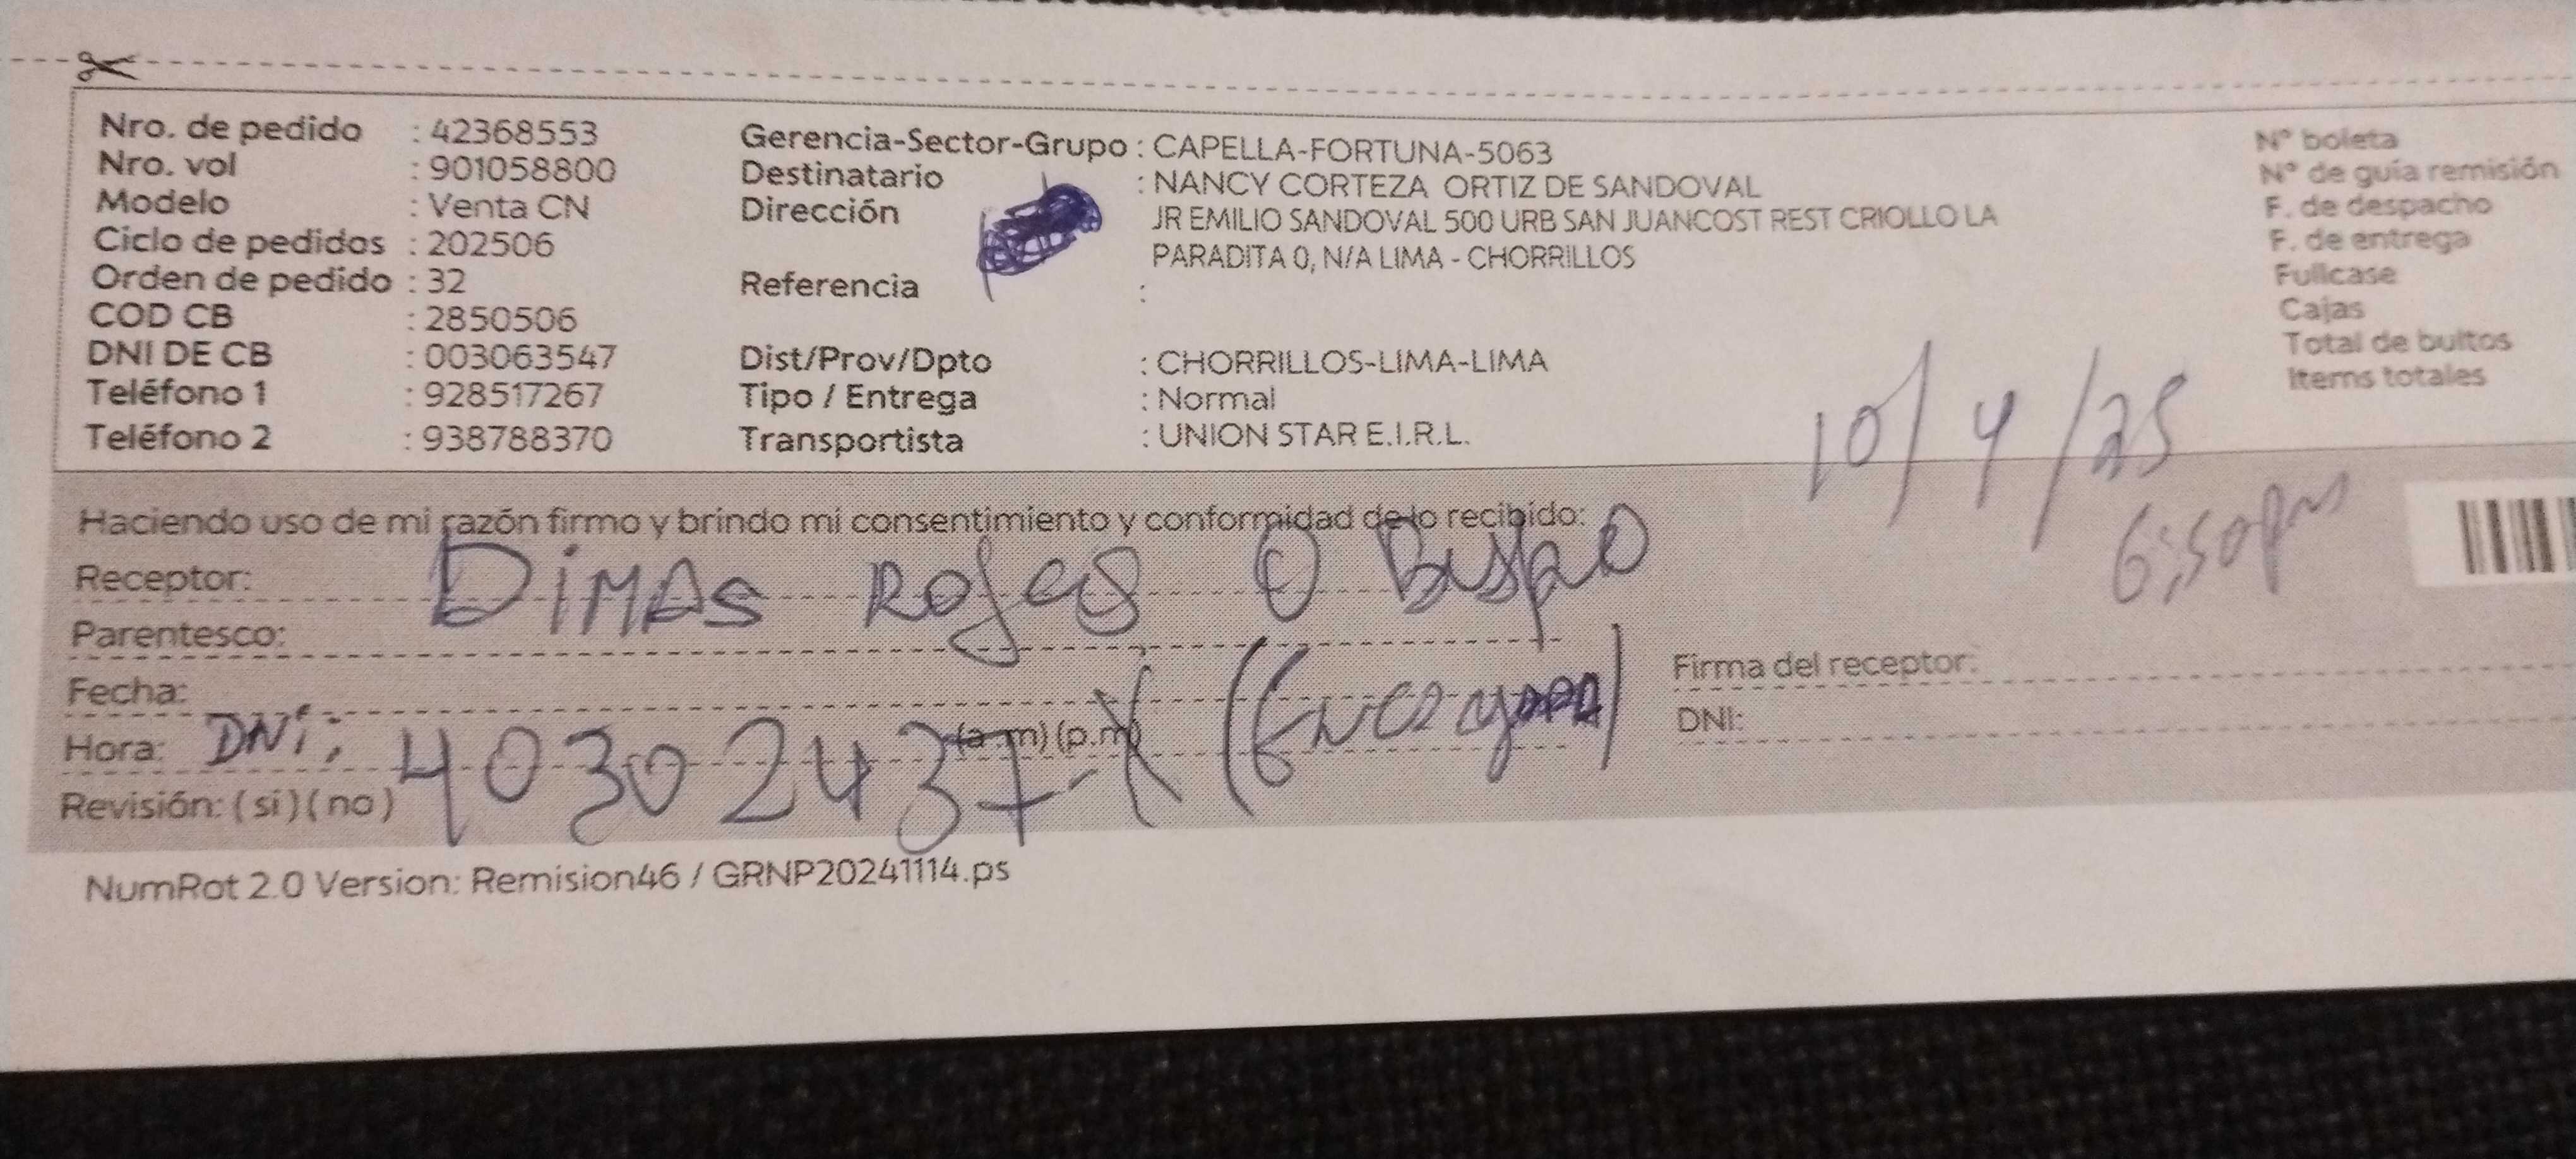 Nro. de pedido : 42368553
Nro. vol : 901058800
Modelo : Venta CN
Ciclo de pedidos : 202506
Orden de pedido : 32
COD CB : 2850506
DNI DE CB : 003063547
Teléfono 1 : 928517267
Teléfono 2 : 938788370
Gerencia-Sector-Grupo : CAPELLA-FORTUNA-5063
Destinatario : NANCY CORTEZA ORTIZ DE SANDOVAL
Dirección : JR EMILIO SANDOVAL 500 URB SAN JUANCOST REST CRIOLLO LA
PARADITA 0, N/A LIMA - CHORRILLOS
Referencia :
Dist/Prov/Dpto : CHORRILLOS-LIMA-LIMA
Tipo / Entrega : Normal
Transportista : UNION STAR E.I.R.L.
N° boleta
N° de guía remisión
F. de despacho
F. de entrega
Fullcase
Cajas
Total de bultos
Items totales
10/4/25
6:50pm
Haciendo uso de mi razón firmo y brindo mi consentimiento y conformidad de lo recibido:
Receptor: DIMAS ROJAS OBISPO
Parentesco:
Fecha:
Hora: DNi: 40302437 (a.m) (p.m)
Revisión: (si) (no)
Firma del receptor:
DNI:
NumRot 2.0 Version: Remision46 / GRNP20241114.ps